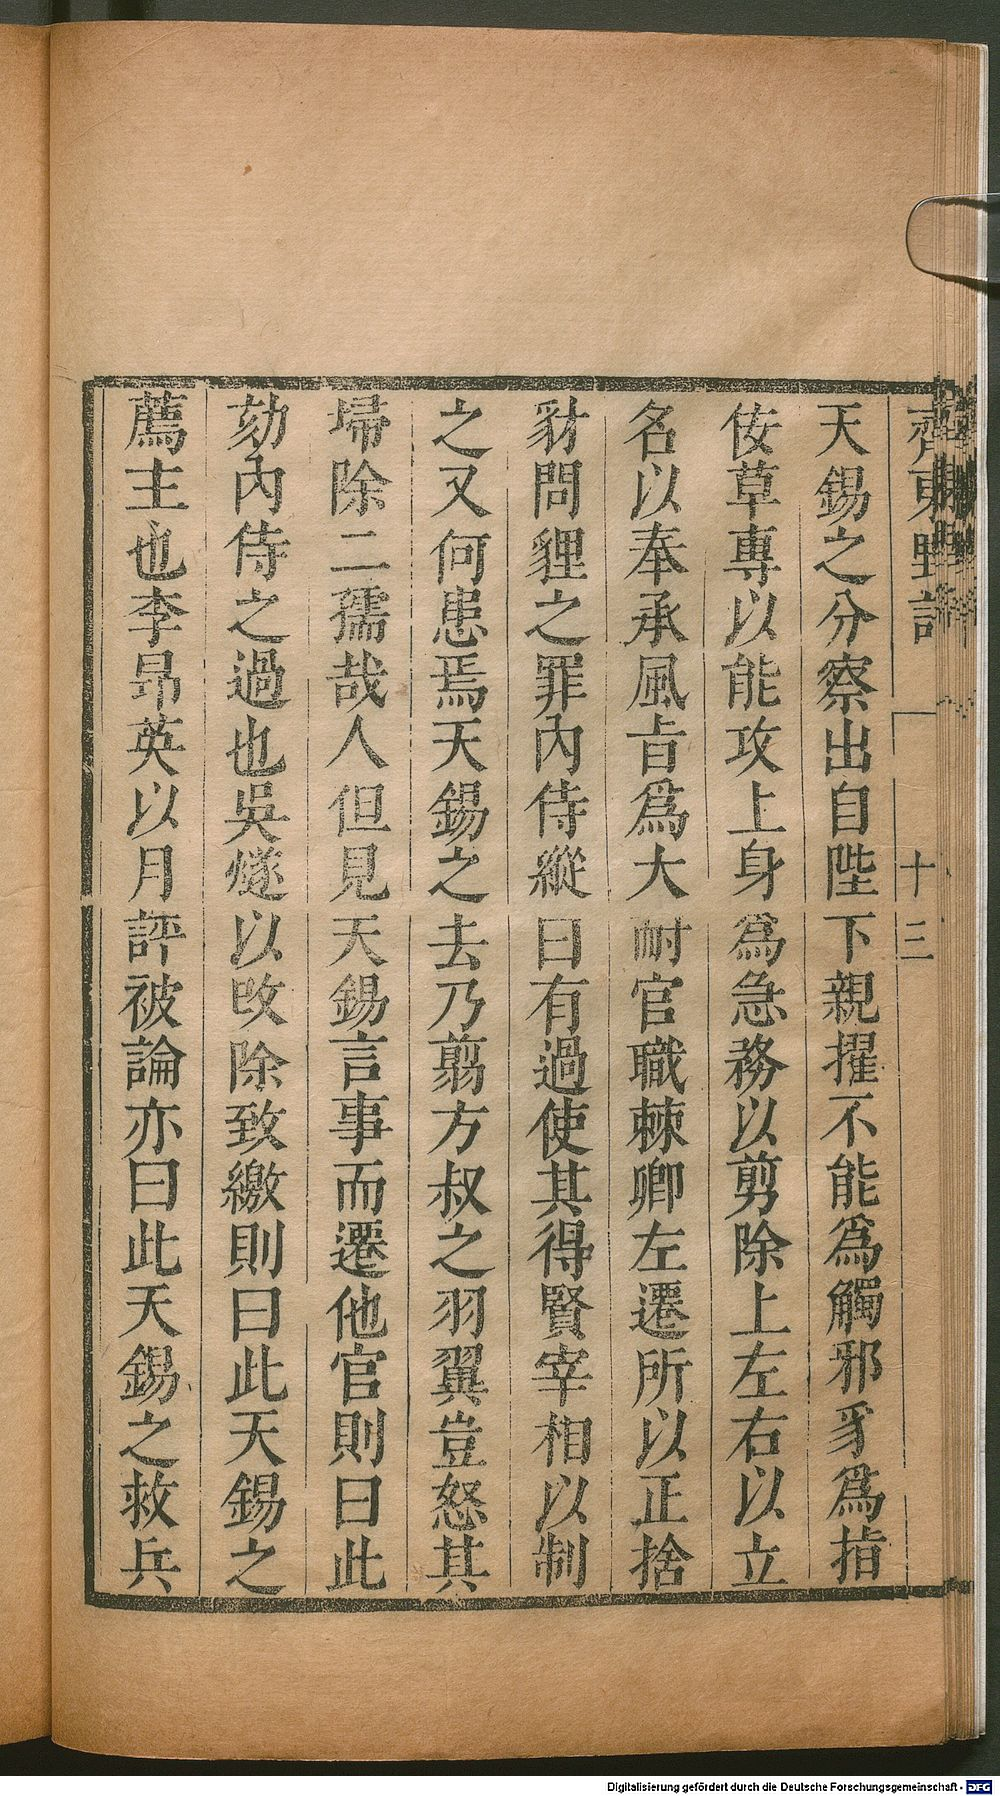 齊東野語
十三
天錫之分察出自陛下親擢不能爲觸邪豸爲指
佞草專以能攻上身爲急務以剪除上左右以立
名以奉承風旨爲大耐官職棘卿左遷所以正捨
豺問狸之罪內侍縱曰有過使其得賢宰相以制
之又何患焉天錫之去乃翦方叔之羽翼豈怒其
埽除二孺哉人但見天錫言事而遷他官則曰此
劾內侍之過也吳燧以攺除致繳則曰此天錫之
薦主也李昂英以月評被論亦曰此天錫之救兵
Digitalisierung gefördert durch die Deutsche Forschungsgemeinschaft - DFG